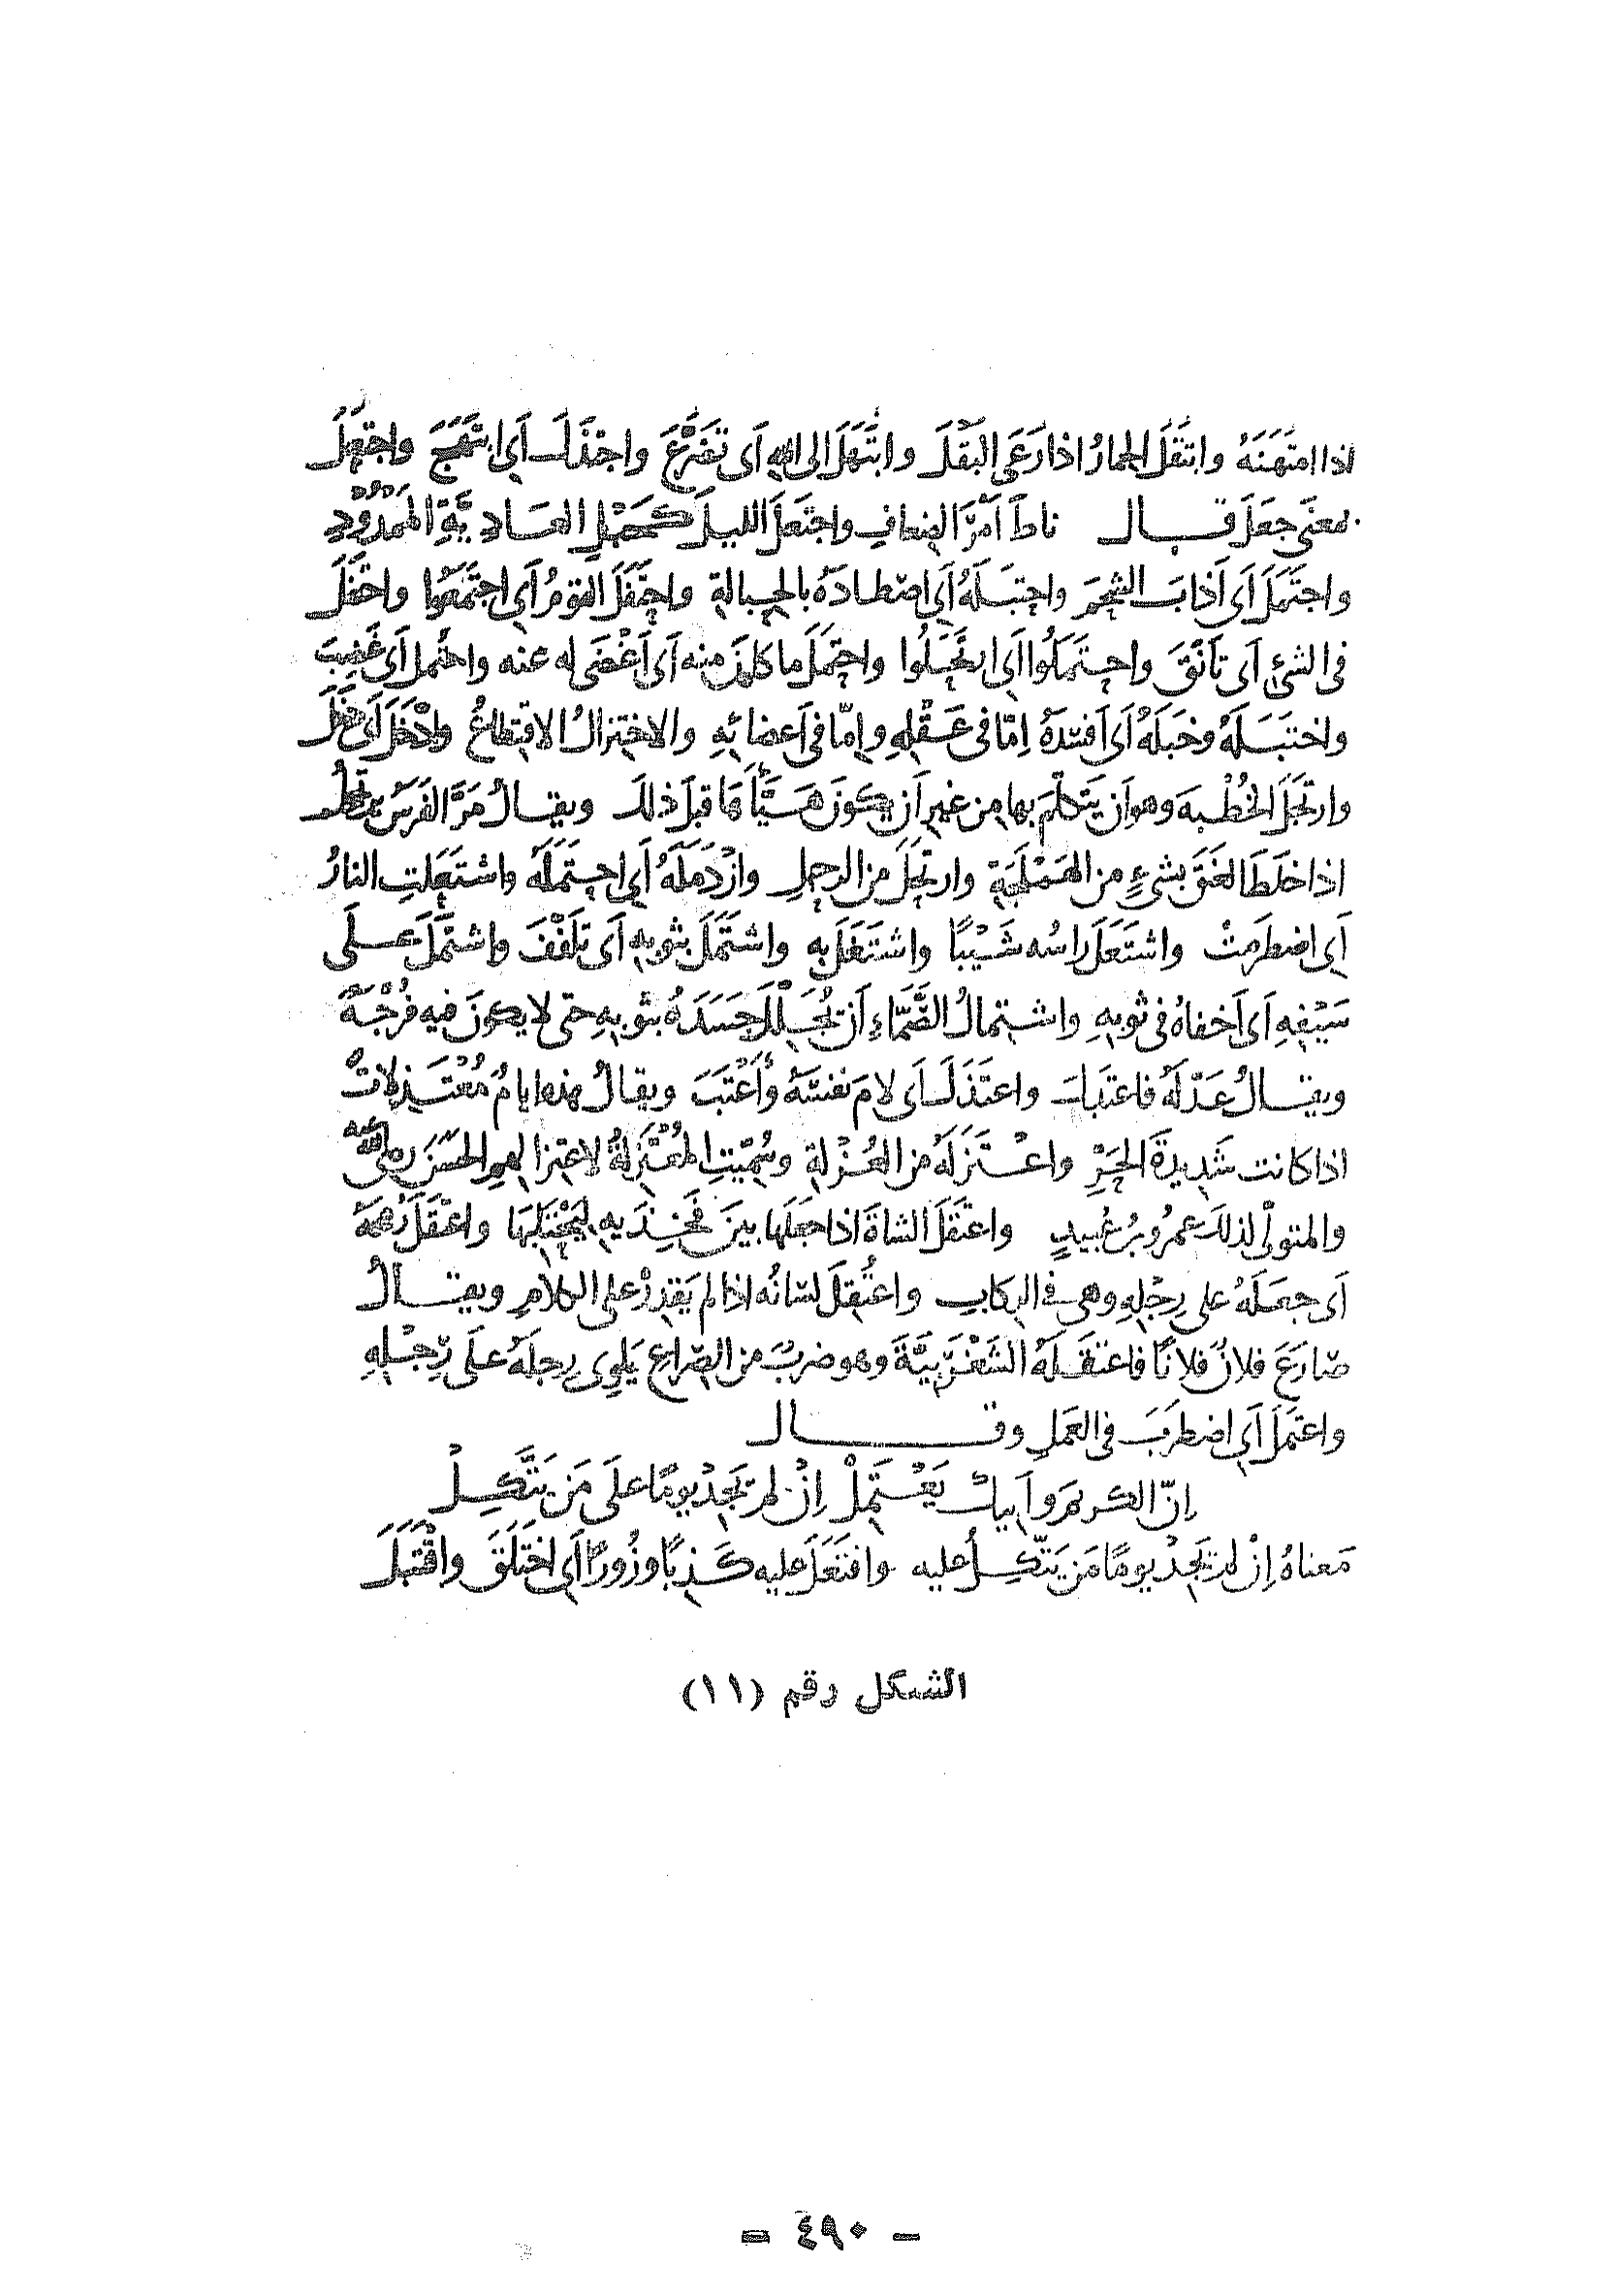 اذا امتَهَنَهُ وابتَقَلَ الحمارُ اذا رَعَى البَقْلَ وابتَهَلَ الى الله أى تَضَرَّعَ واجْتذَلَ أى ابتَهَجَ واجتَعَلَ
بمعنى جعَلَ قال ناطَ أمْرَ الضعافِ واجتَعَلَ الليلَ كَحَبْلِ العَادِيَّةِ المَمْدُودِ
واجتَمَلَ أى أذابَ الشحمَ واحتبَلَهُ أى اصطادَهُ بالحِبالةِ واحتَفَلَ القومُ أى اجتَمَعُوا واحتَفَلَ
فى الشئ أى تأنّقَ واحتَمَلُوا أى ارتَحَلُوا واحتَمَلَ ما كان منه أى أغْضَى له عنه واحتُمِل أى غَضِبَ
واختَبَلَهُ وخَبَلَهُ أى أفسَدَهُ إمّا فى عَقْلِهِ وإمّا فى أعضائِهِ والاختِزالُ الاقتِطاعُ وادّخَلَ أى دَخَلَ
وارتَجَلَ الخُطْبةَ وهو أن يَتَكلّمَ بها من غيرِ أن يكونَ هَيَّأَها قبلَ ذلك ويقالُ مَرَّ الفَرَسُ يرتَجِلُ
اذا خلَطَ العَنَقَ بشىءٍ من الهَمْلَجَةِ وارتحَلَ من الرحيلِ وازْدَمَلَهُ أى احتَمَلَهُ واشتَعَلَتِ النارُ
أى اضطرَمتْ واشتَعَلَ راسُه شَيْبًا واشتَغَلَ بهِ واشتَمَلَ بثوبِهِ أى تلَفّفَ واشتمَلَ على
سَيْفِهِ أى أخفاهُ فى ثوبِهِ واشتِمالُ الصَّمّاءِ أن يُجَلِّلَ جَسَدَهُ بثَوبِهِ حتى لا يكونَ فيه فُرْجَةٌ
ويقالُ عَدّلَهُ فاعتَدَلَ واعتَذَلَ أى لامَ نفسَهُ وأعْتَبَ ويقالُ هذه ايامٌ مُعْتَذِلاتٌ
اذا كانت شَديدةَ الحَرِّ واعْتَزَلَهُ من العُزْلةِ وسُمّيَتِ المُعْتَزِلةُ لاعتِزالهم الحسَنَ رضى الله عنه
والمتولّى لذلك عمرُو بنُ عُبيدٍ واعتَقَلَ الشاةَ اذا جعَلَها بينَ فَخِذَيهِ ليَحْتَلِبَها واعتَقَلَ رُمحَهُ
أى جعَلَهُ على رِجْلِهِ وهى فى الركابِ واعتُقِلَ لسَانُه اذا لم يَقدِرْ على الكلامِ ويقالُ
صارَعَ فلانٌ فلانًا فاعتَقَلَهُ الشَغْزَبِيَّةَ وهو ضربٌ من الصّراعِ يَلوِى رِجلَهُ علَى رِجْلِهِ
واعتمَلَ أى اضطربَ فى العَمَلِ وقال
إنّ الكريمَ وأبيك يَعْتَمِلْ إنْ لم يَجِدْ يومًا علَى مَن يَتَّكِلْ
مَعناهُ إنْ لم يَجِدْ يومًا مَن يَتّكِلُ عليه وافتَعَلَ عليه كَذِبًا وزُورًا أى اختَلَقَ واقْتَبَلَ
الشكل رقم (١١)
- ٤٩٠ -